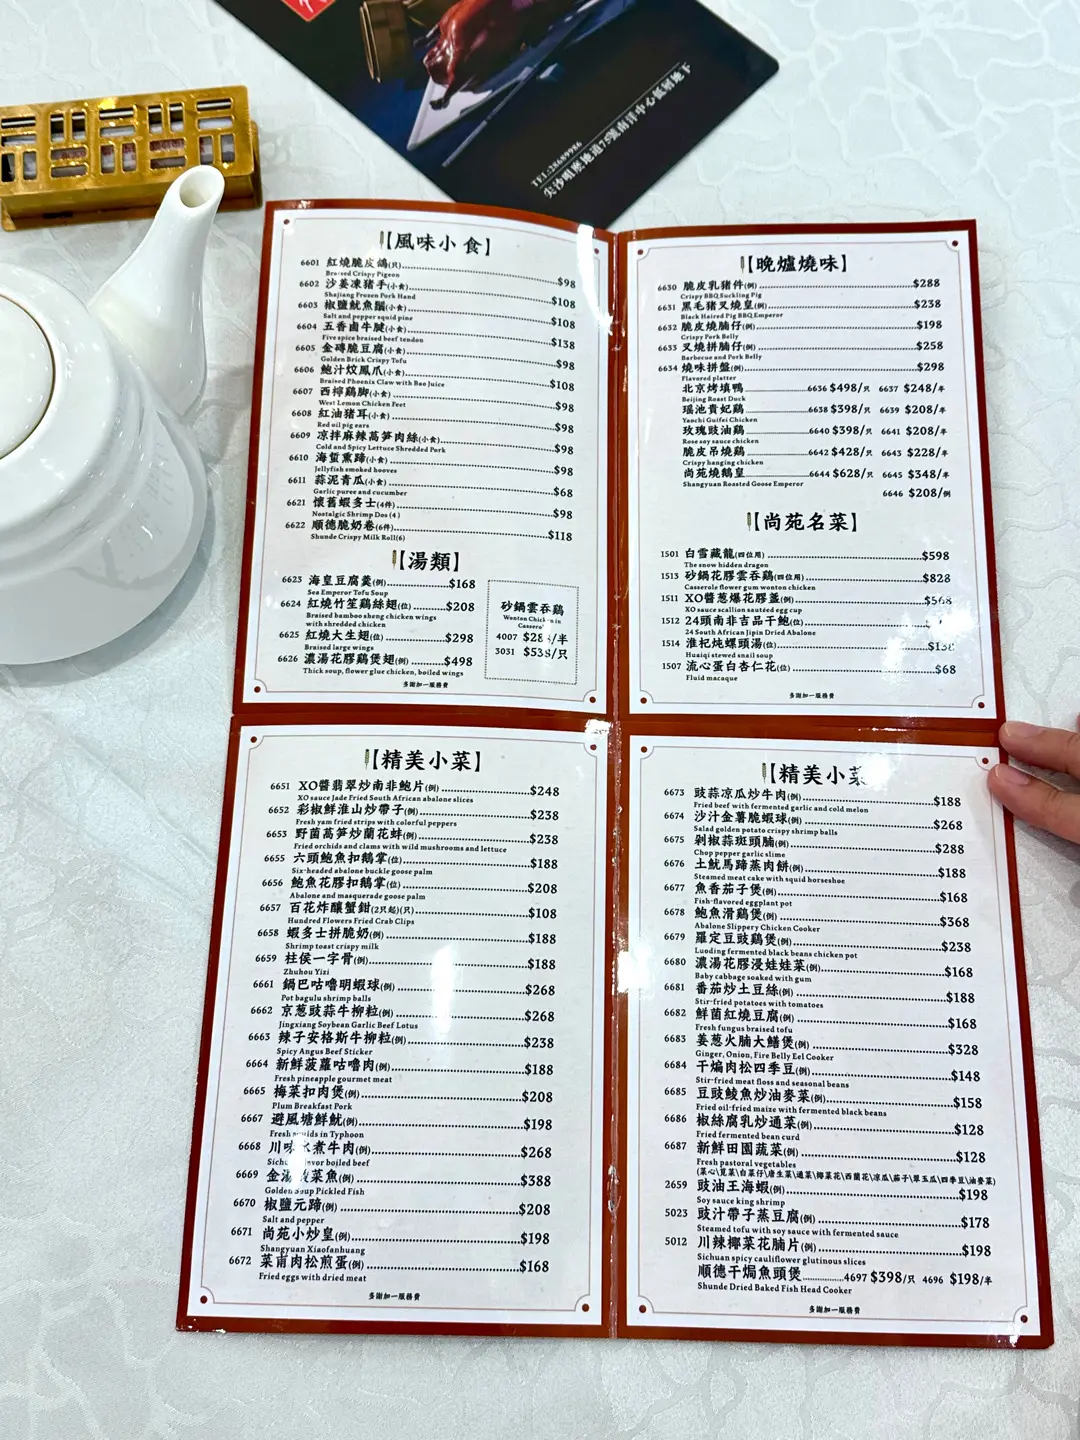 TEL:28689986
尖沙咀麼地道75號南洋中心低層地下
【風味小食】
6601 紅燒脆皮鴿(只) $98
Braised Crispy Pigeon
6602 沙姜凍猪手(小食) $108
Shajiang Frozen Pork Hand
6603 椒鹽魷魚鬚(小食) $108
Salt and pepper squid pine
6604 五香鹵牛腱(小食) $138
Five spice braised beef tendon
6605 金磚脆豆腐(小食) $98
Golden Brick Crispy Tofu
6606 鮑汁炆鳳爪(小食) $108
Braised Phoenix Claw with Bao Juice
6607 西檸鷄脚(小食) $98
West Lemon Chicken Feet
6608 紅油猪耳(小食) $98
Red oil pig ears
6609 凉拌麻辣萵笋肉絲(小食) $98
Cold and Spicy Lettuce Shredded Pork
6610 海蜇熏蹄(小食) $98
Jellyfish smoked hooves
6611 蒜泥青瓜(小食) $68
Garlic puree and cucumber
6621 懷舊蝦多士(4件) $98
Nostalgic Shrimp Dos (4)
6622 順德脆奶卷(6件) $118
Shunde Crispy Milk Roll(6)
【湯類】
6623 海皇豆腐羹(例) $168
Sea Emperor Tofu Soup
6624 紅燒竹笙鷄絲翅(位) $208
Braised bamboo sheng chicken wings
with shredded chicken
6625 紅燒大生翅(位) $298
Braised large wings
6626 濃湯花膠鷄煲翅(例) $498
Thick soup, flower glue chicken, boiled wings
砂鍋雲吞鷄
Wonton Chicken in
Casserole
4007 /半
3031 $538/只
多謝加一服務費
【晚爐燒味】
6630 脆皮乳猪件(例) $288
Crispy BBQ Suckling Pig
6631 黑毛猪叉燒皇(例) $238
Black Haired Pig BBQ Emperor
6632 脆皮燒腩仔(例) $198
Crispy Pork Belly
6633 叉燒拼腩仔(例) $258
Barbecue and Pork Belly
6634 燒味拼盤(例) $298
Flavored platter
北京烤填鴨 6636 $498/只 6637 $248/半
Beijing Roast Duck
瑶池貴妃鷄 6638 $398/只 6639 $208/半
Yaochi Guifei Chicken
玫瑰豉油鷄 6640 $398/只 6641 $208/半
Rose soy sauce chicken
脆皮吊燒鷄 6642 $428/只 6643 $228/半
Crispy hanging chicken
尚苑燒鵝皇 6644 $628/只 6645 $348/半
Shangyuan Roasted Goose Emperor
6646 $208/例
【尚苑名菜】
1501 白雪藏龍(四位用) $598
The snow hidden dragon
1513 砂鍋花膠雲吞鷄(四位用) $828
Casserole flower gum wonton chicken
1511 XO醬葱爆花膠盞(例) $568
XO sauce scallion sautéed egg cup
1512 24頭南非吉品干鮑(位)
24 South African Jipin Dried Abalone
1514 淮杞炖螺頭湯(位) $138
Huaiqi stewed snail soup
1507 流心蛋白杏仁花(位) $68
Fluid macaque
多謝加一服務費
【精美小菜】
6651 XO醬翡翠炒南非鮑片(例) $248
XO sauce Jade Fried South African abalone slices
6652 彩椒鮮淮山炒帶子(例) $238
Fresh yam fried strips with colorful peppers
6653 野菌萵笋炒蘭花蚌(例) $238
Fried orchids and clams with wild mushrooms and lettuce
6655 六頭鮑魚扣鵝掌(位) $188
Six-headed abalone buckle goose palm
6656 鮑魚花膠扣鵝掌(位) $208
Abalone and masquerade goose palm
6657 百花炸釀蟹鉗(2只起)(只) $108
Hundred Flowers Fried Crab Clips
6658 蝦多士拼脆奶(例) $188
Shrimp toast crispy milk
6659 柱侯一字骨(例) $188
Zhuhou Yizi
6661 鍋巴咕嚕明蝦球(例) $268
Pot bagulu shrimp balls
6662 京葱豉蒜牛柳粒(例) $268
Jingxiang Soybean Garlic Beef Lotus
6663 辣子安格斯牛柳粒(例) $238
Spicy Angus Beef Sticker
6664 新鮮菠蘿咕嚕肉(例) $188
Fresh pineapple gourmet meat
6665 梅菜扣肉煲(例) $208
Plum Breakfast Pork
6667 避風塘鮮魷(例) $198
Fresh squids in Typhoon
6668 川味水煮牛肉(例) $268
Sichuan flavor boiled beef
6669 金湯酸菜魚(例) $388
Golden Soup Pickled Fish
6670 椒鹽元蹄(例) $208
Salt and pepper
6671 尚苑小炒皇(例) $198
Shangyuan Xiaofanhuang
6672 菜甫肉松煎蛋(例) $168
Fried eggs with dried meat
多謝加一服務費
【精美小菜
6673 豉蒜凉瓜炒牛肉(例) $188
Fried beef with fermented garlic and cold melon
6674 沙汁金薯脆蝦球(例) $268
Salad golden potato crispy shrimp balls
6675 剁椒蒜斑頭腩(例) $288
Chop pepper garlic slime
6676 土魷馬蹄蒸肉餅(例) $188
Steamed meat cake with squid horseshoe
6677 魚香茄子煲(例) $168
Fish-flavored eggplant pot
6678 鮑魚滑鷄煲(例) $368
Abalone Slippery Chicken Cooker
6679 羅定豆豉鷄煲(例) $238
Luoding fermented black beans chicken pot
6680 濃湯花膠浸娃娃菜(例) $168
Baby cabbage soaked with gum
6681 番茄炒土豆絲(例) $188
Stir-fried potatoes with tomatoes
6682 鮮菌紅燒豆腐(例) $168
Fresh fungus braised tofu
6683 姜葱火腩大鱔煲(例) $328
Ginger, Onion, Fire Belly Eel Cooker
6684 干煸肉松四季豆(例) $148
Stir-fried meat floss and seasonal beans
6685 豆豉鯪魚炒油麥菜(例) $158
Fried oil-fried maize with fermented black beans
6686 椒絲腐乳炒通菜(例) $128
Fried fermented bean curd
6687 新鮮田園蔬菜(例) $128
Fresh pastoral vegetables
(菜心\莧菜\白菜仔\唐生菜\通菜\椰菜花\西蘭花\凉瓜\茄子\翠玉瓜\四季豆\油麥菜)
2659 豉油王海蝦(例) $198
Soy sauce king shrimp
5023 豉汁帶子蒸豆腐(例) $178
Steamed tofu with soy sauce with fermented sauce
5012 川辣椰菜花腩片(例) $198
Sichuan spicy cauliflower glutinous slices
順德干焗魚頭煲 4697 $398/只 4696 $198/半
Shunde Dried Baked Fish Head Cooker
多謝加一服務費